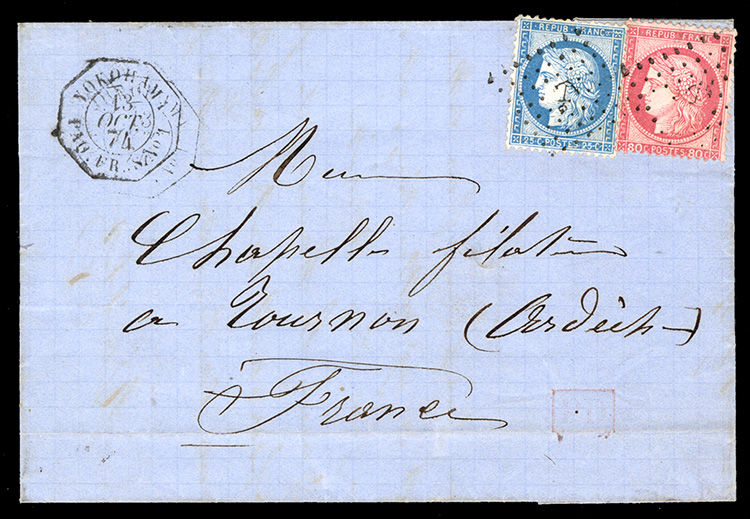 YOKOHAMA
13
OCT.
74
PAQ. FR. N No 1
REPUB. FRANC.
25 C. POSTES 25 C.
REPUB. FRANC.
80 C. POSTES 80 C.
Chapelle filateur
a Tournon (Ardèche)
France